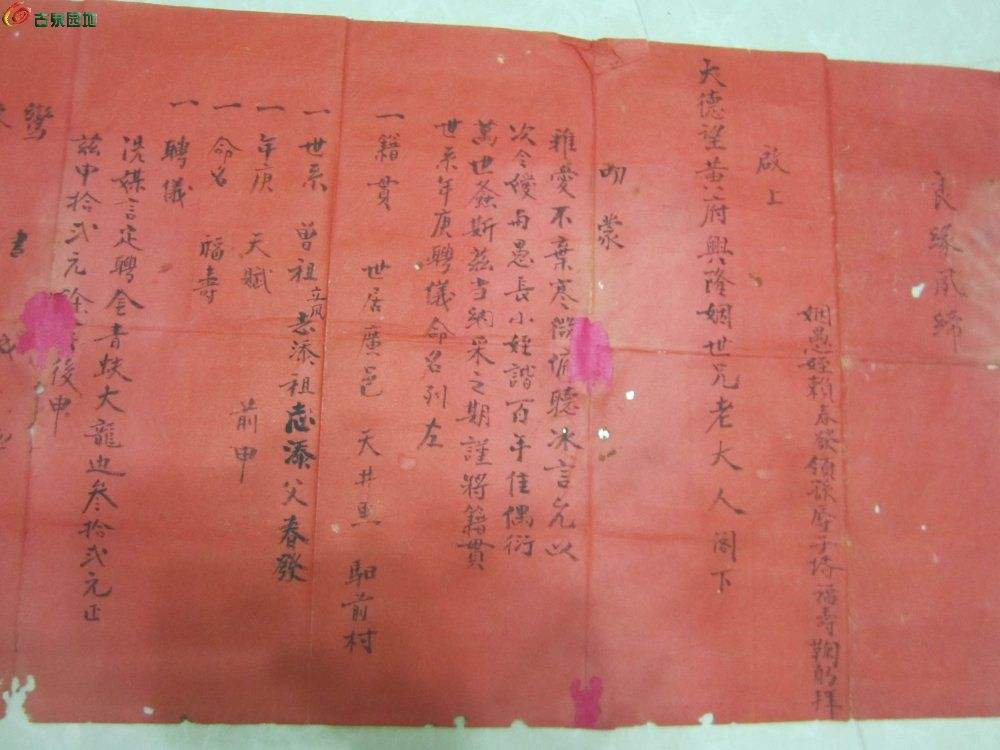 良緣夙締
姻愚姪賴春發領孫辱子壻福壽鞠躬拜
啟上
大德望黃府興隆姻世兄老大人閣下
叨蒙
雅愛不棄寒微俯聽冰言允以
次令嬡與愚長小姪諧百年佳偶衍
萬世螽斯茲當納采之期謹將籍貫
世系年庚聘儀命名列左
一籍貫 世居廣邑 天井 前村
一世系 曾祖立凤志添祖志添父春發
一年庚 天賦 前申
一命名 福壽
一聘儀
憑媒言定聘金青蚨大龍边叁拾弍元正
茲申拾弍元餘 後申
鸞書
古泉园地